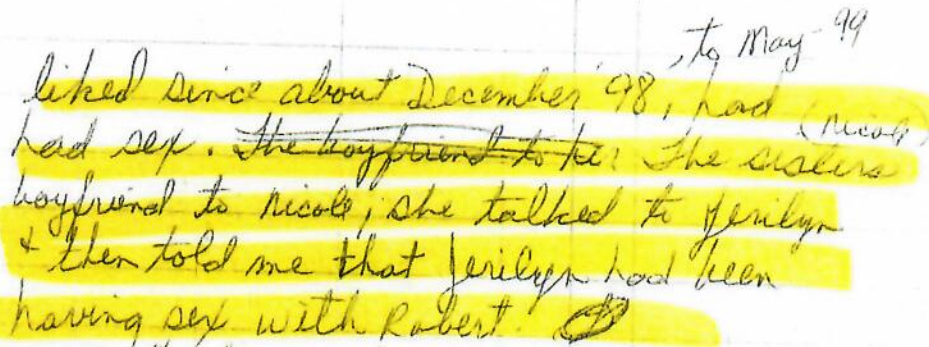 , to May 99
liked since about December '98, had
had sex. The boyfriend to her The sisters (nicole)
boyfriend to nicole, she talked to Jerilyn
& then told me that Jerilyn had been
having sex with Robert.